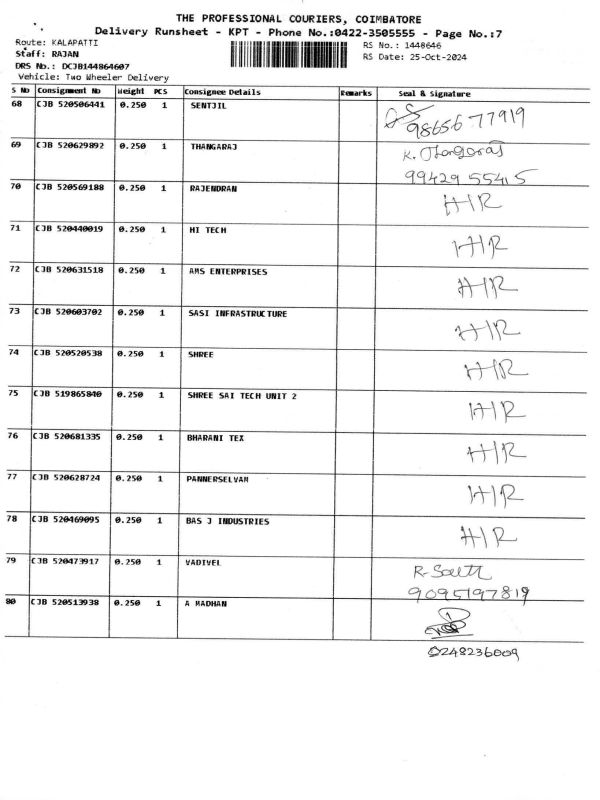 THE PROFESSIONAL COURIERS, COIMBATORE
Delivery Runsheet - KPT - Phone No.:0422-3505555 - Page No.:7
Route: KALAPATTI
RS No.: 1448646
Staff: RAJAN
RS Date: 25-Oct-2024
DRS No.: DCJB144864607
Vehicle: Two Wheeler Delivery
S No Consignment No Weight PCS Consignee Details Remarks Seal & Signature
68 CJB 520506441 0.250 1 SENTJIL
98656 77919
69 CJB 520629892 0.250 1 THANGARAJ K. Thangaraj
99429 55415
70 CJB 520569188 0.250 1 RAJENDRAN H/R
71 CJB 520440019 0.250 1 HI TECH H/R
72 CJB 520631518 0.250 1 AMS ENTERPRISES H/R
73 CJB 520603702 0.250 1 SASI INFRASTRUCTURE H/R
74 CJB 520520538 0.250 1 SHREE H/R
75 CJB 519865840 0.250 1 SHREE SAI TECH UNIT 2 H/R
76 CJB 520681335 0.250 1 BHARANI TEX H/R
77 CJB 520628724 0.250 1 PANNERSELVAM H/R
78 CJB 520469095 0.250 1 BAS J INDUSTRIES H/R
79 CJB 520473917 0.250 1 VADIVEL R-
9095197819
80 CJB 520513938 0.250 1 A MADHAN
8248236009